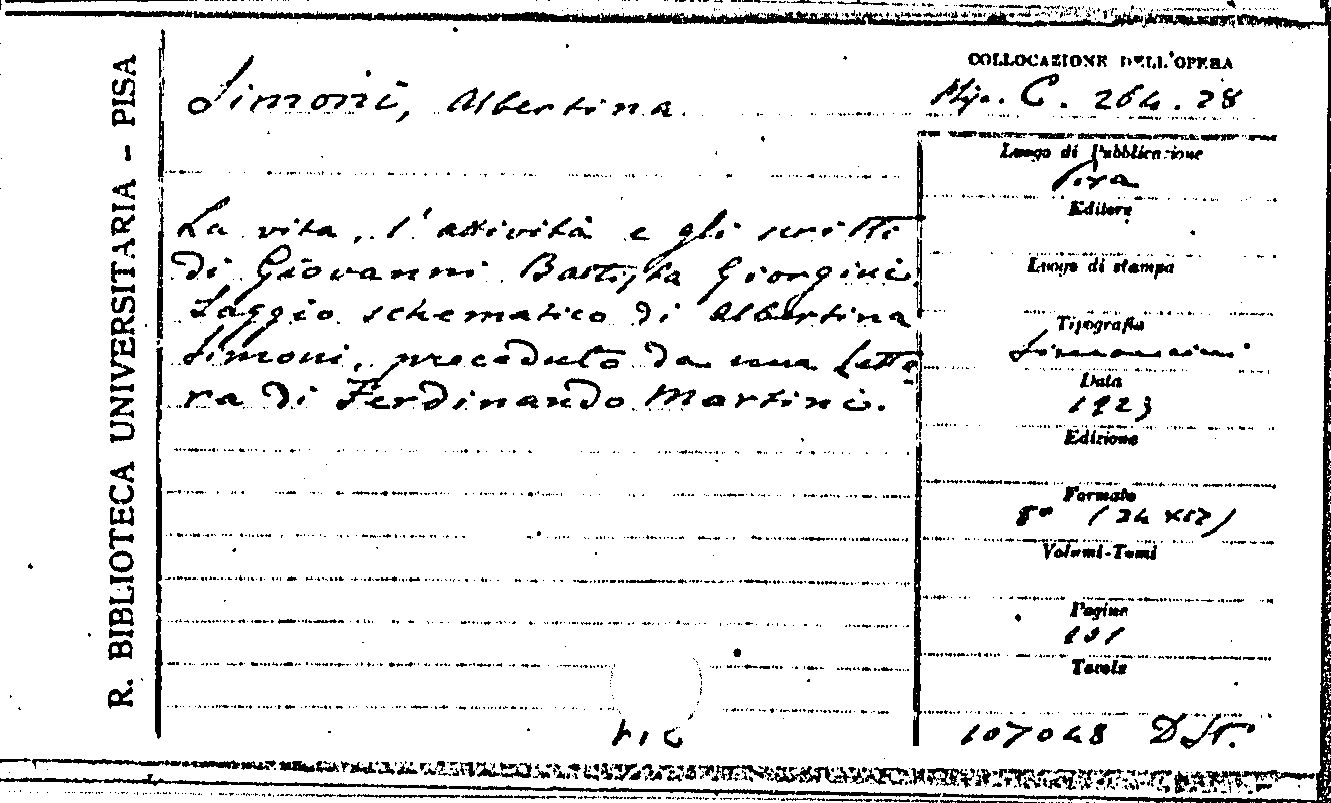 R. BIBLIOTECA UNIVERSITARIA - PISA
Simoni, Albertina
La vita, l'attività e gli scritti
di Giovanni Battista Giorgini.
Saggio schematico di Albertina
Simoni, preceduto da una lette-
ra di Ferdinando Martini.
COLLOCAZIONE DELL'OPERA
C. 264. 28
Luogo di Pubblicazione
Pisa
Editore
Luogo di stampa
Tipografia
Simoncini
Data
1923
Edizione
Formato
8° (24 x 17)
Volumi-Tomi
Pagine
101
Tavole
107048